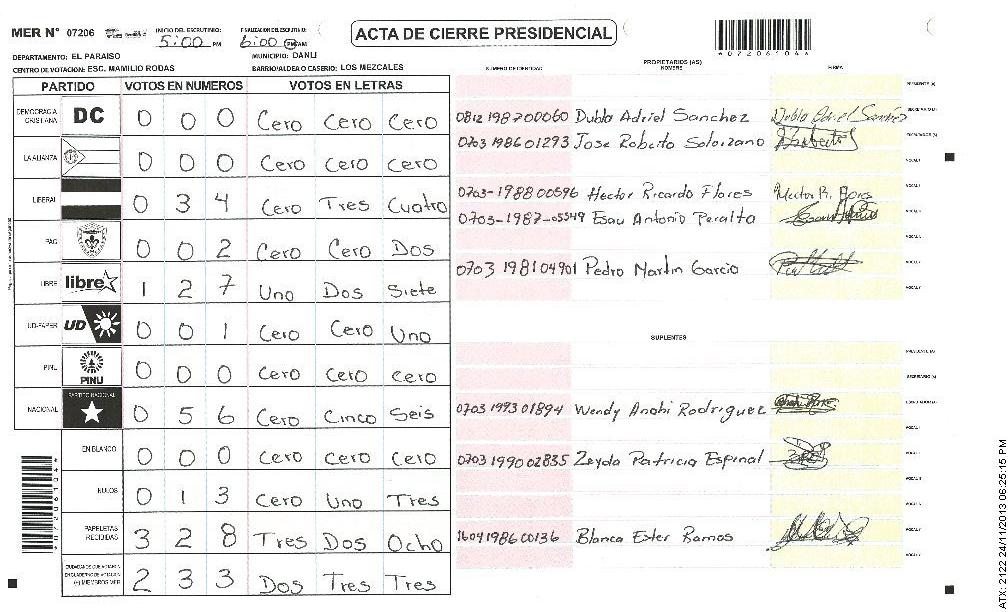 MER N° 07206 INICIO DEL ESCRUTINIO: 5:00 PM FINALIZACION DEL ESCRUTINIO: 6:00 PM/AM
ACTA DE CIERRE PRESIDENCIAL
*07206104*
DEPARTAMENTO: EL PARAISO MUNICIPIO: DANLI
CENTRO DE VOTACION: ESC. MAMILIO RODAS BARRIO/ALDEA O CASERIO: LOS MEZCALES
PROPIETARIOS (AS)
NUMERO DE IDENTIDAD NOMBRE FIRMA
PARTIDO VOTOS EN NUMEROS VOTOS EN LETRAS
DEMOCRACIA CRISTIANA DC 0 0 0 Cero Cero Cero
LA ALIANZA 0 0 0 Cero Cero Cero
LIBERAL 0 3 4 Cero Tres Cuatro
PAC 0 0 2 Cero Cero Dos
LIBRE libre 1 2 7 Uno Dos Siete
UD-FAPER UD 0 0 1 Cero Cero Uno
PINU PINU 0 0 0 Cero Cero Cero
NACIONAL PARTIDO NACIONAL 0 5 6 Cero Cinco Seis
EN BLANCO 0 0 0 Cero Cero Cero
NULOS 0 1 3 Cero Uno Tres
PAPELETAS RECIBIDAS 3 2 8 Tres Dos Ocho
CIUDADANOS QUE VOTARON EN CUADERNO DE VOTACION (+) MIEMBROS MER 2 3 3 Dos Tres Tres
PRESIDENTE (A)
0812 198700060 Dublo Adriel Sanchez Dublo Adriel Sanchez SECRETARIO (A)
0703 198601293 Jose Roberto Solorzano ESCRUTADOR (A)
VOCAL I
0703-1988 00596 Hector Ricardo Flores Hector R. Flores
0703-1987-05549 Esau Antonio Peralta
0703 198104901 Pedro Martin Garcia
SUPLENTES
PRESIDENTE (A)
SECRETARIO (A)
0703 1993 01894 Wendy Anahi Rodriguez ESCRUTADOR (A)
VOCAL I
0703 1990 02835 Zeyda Patricia Espinal
1604 1986 00136 Blanca Ester Ramos
*07206104*
ATX: 2122 24/11/2013 06:25:15 PM